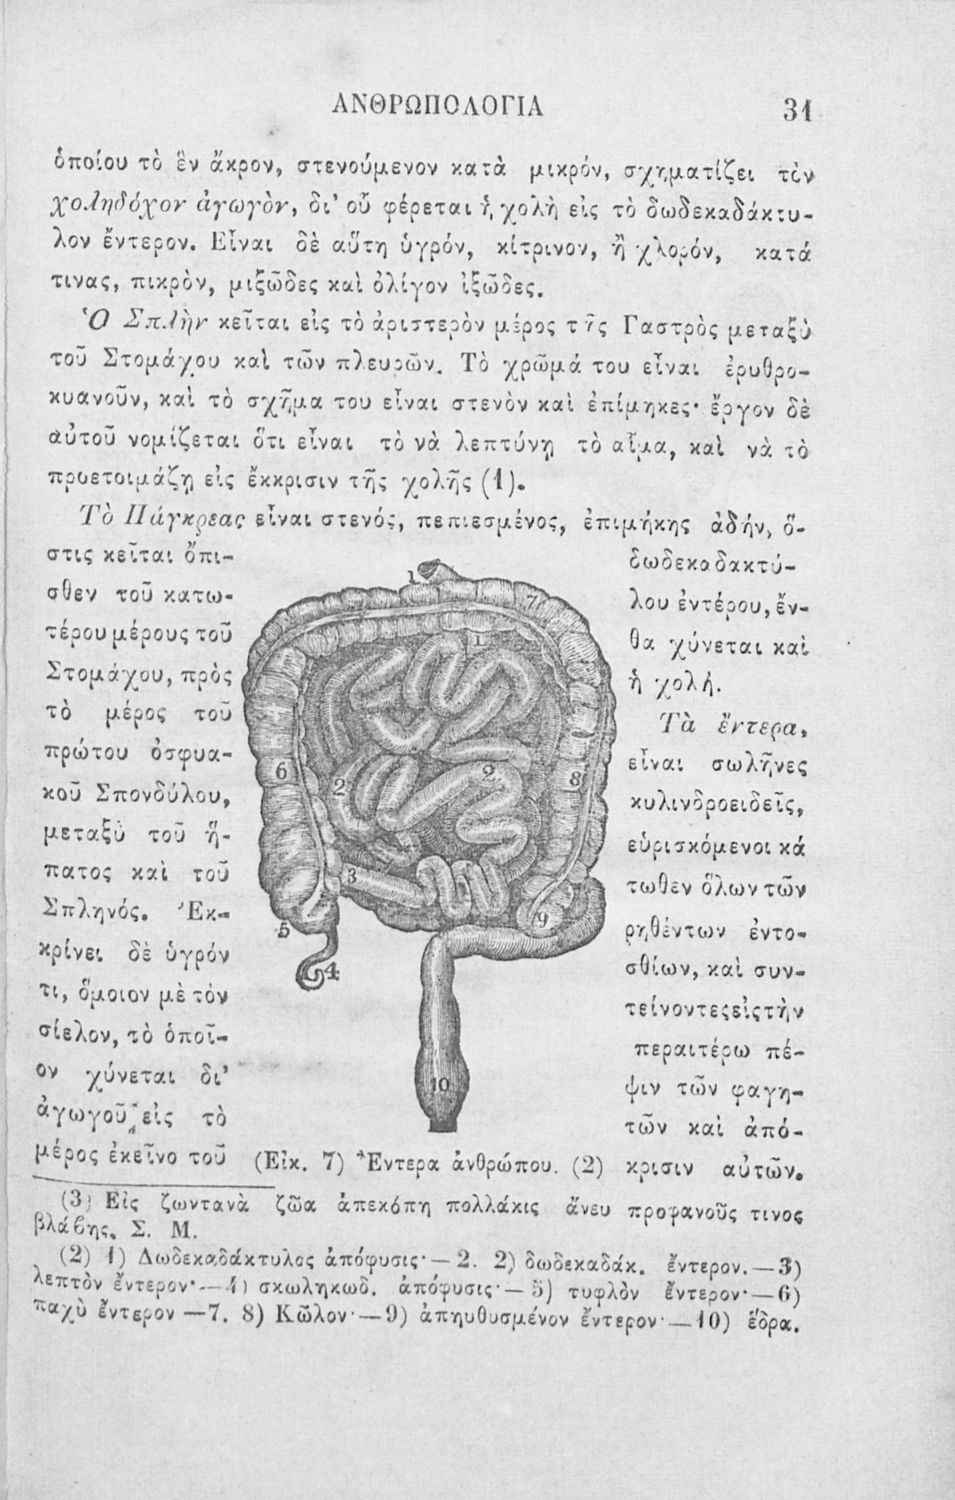 ΑΝΘΡΩΠΟΛΟΓΙΑ 31
ὁποίου τὸ ἓν ἄκρον, στενούμενον κατὰ μικρόν, σχηματίζει τὸν
χοληδόχον ἀγωγὸν, δι' οὗ φέρεται ἡ χολὴ εἰς τὸ δωδεκαδάκτυ-
λον ἔντερον. Εἶναι δὲ αὕτη ὑγρόν, κίτρινον, ἢ χλορόν, κατά
τινας, πικρὸν, μιξῶδες καὶ ὀλίγον ἰξῶδες.
Ὁ Σπλὴν κεῖται εἰς τὸ ἀριστερὸν μέρος τῆς Γαστρὸς μεταξὺ
τοῦ Στομάχου καὶ τῶν πλευρῶν. Τὸ χρῶμά του εἶναι ἐρυθρο-
κυανοῦν, καὶ τὸ σχῆμα του εἶναι στενὸν καὶ ἐπίμηκες· ἔργον δὲ
αὐτοῦ νομίζεται ὅτι εἶναι τὸ νὰ λεπτύνῃ τὸ αἷμα, καὶ νὰ τὸ
προετοιμάζῃ εἰς ἔκκρισιν τῆς χολῆς (1).
Τὸ Πάγκρεας εἶναι στενός, πεπιεσμένος, ἐπιμήκης ἀδήν, ὅ-
στις κεῖται ὄπι-
σθεν τοῦ κατω-
τέρου μέρους τοῦ
Στομάχου, πρὸς
τὸ μέρος τοῦ
πρώτου ὀσφυα-
κοῦ Σπονδύλου,
μεταξὺ τοῦ ἥ-
πατος καὶ τοῦ
Σπληνός. Ἐκ-
κρίνει δὲ ὑγρόν
τι, ὅμοιον μὲ τὸν
σίελον, τὸ ὁποῖ-
ον χύνεται δι'
ἀγωγοῦ εἰς τὸ
μέρος ἐκεῖνο τοῦ
δωδεκαδακτύ-
λου ἐντέρου, ἔν-
θα χύνεται καὶ
ἡ χολή.
Τὰ ἔντερα,
εἶναι σωλῆνες
κυλινδροειδεῖς,
εὑρισκόμενοι κά
τωθεν ὅλων τῶν
ρηθέντων ἐντο-
σθίων, καὶ συν-
τείνοντες εἰς τὴν
περαιτέρω πέ-
ψιν τῶν φαγη-
τῶν καὶ ἀπό-
κρισιν αὐτῶν.
1
7
1
6
2
2
8
3
9
5
4
10
(Εἰκ. 7) Ἔντερα ἀνθρώπου. (2)
(3) Εἰς ζωντανὰ ζῶα ἀπεκόπη πολλάκις ἄνευ προφανοῦς τινος
βλάβης. Σ. Μ.
(2) 1) Δωδεκαδάκτυλος ἀπόφυσις· — 2. 2) δωδεκαδάκ. ἔντερον. — 3)
λεπτὸν ἔντερον· — 4) σκωληκωδ. ἀπόφυσις· — 5) τυφλὸν ἔντερον· — 6)
παχὺ ἔντερον — 7. 8) Κῶλον· — 9) ἀπηυθυσμένον ἔντερον· — 10) ἕδρα.